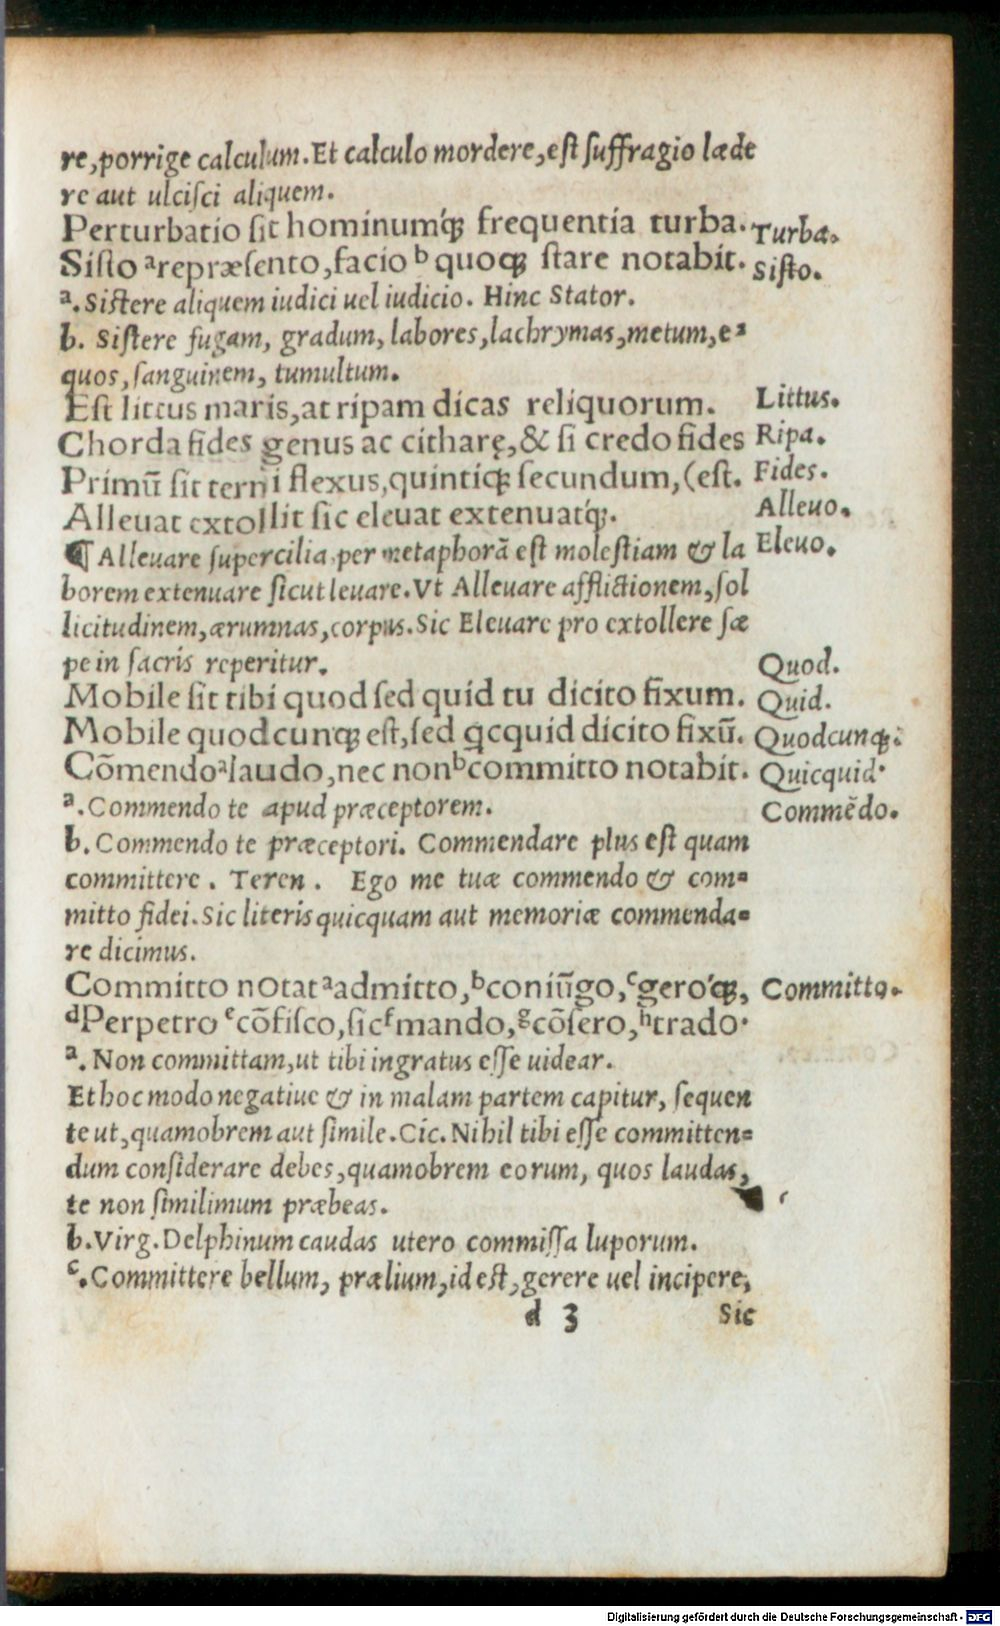 re,porrige calculum.Et calculo mordere,est suffragio læde
re aut ulcisci aliquem.
Perturbatio sit hominumq́ꝫ frequentia turba. Turba.
Sisto ᵃrepræsento,facio ᵇ quoqꝫ stare notabit. Sisto.
ᵃ.Sistere aliquem iudici uel iudicio. Hinc Stator.
b. Sistere fugam, gradum, labores,lachrymas,metum,e-
quos,sanguinem, tumultum.
Est littus maris,at ripam dicas reliquorum. Littus.
Chorda fides genus ac citharę,& si credo fides Ripa.
Primū sit terni flexus,quintiqꝫ secundum,(est. Fides.
Alleuat extollit sic eleuat extenuatq́ꝫ. Alleuo.
¶ Alleuare supercilia,per metaphorā est molestiam & la Eleuo.
borem extenuare sicut leuare.Vt Alleuare afflictionem,sol
licitudinem,ærumnas,corpus.Sic Eleuare pro extollere sæ
pe in sacris reperitur.
Mobile sit tibi quod sed quid tu dicito fixum. Quod.
Quid.
Mobile quodcunqꝫ est,sed qcquid dicito fixū. Quodcunqꝫ.
Cōmendoᵃlaudo,nec nonᵇcommitto notabit. Quicquid.
ᵃ.Commendo te apud præceptorem. Commēdo.
b.Commendo te præceptori. Commendare plus est quam
committere. Teren. Ego me tuæ commendo & com-
mitto fidei.Sic literis quicquam aut memoriæ commenda-
re dicimus.
Committo notatᵃadmitto,ᵇconiūgo,ᶜgeroq́ꝫ, Committo.
ᵈPerpetro ᵉcōfisco,sicᶠmando,ᵍcōsero,ʰtrado.
ᵃ. Non committam,ut tibi ingratus esse uidear.
Et hoc modo negatiue & in malam partem capitur, sequen
te ut,quamobrem aut simile.Cic.Nihil tibi esse committen-
dum considerare debes,quamobrem eorum, quos laudas,
te non similimum præbeas.
b.Virg.Delphinum caudas utero commissa luporum.
ᶜ.Committere bellum, prælium,id est,gerere uel incipere,
d 3 Sic
Digitalisierung gefördert durch die Deutsche Forschungsgemeinschaft - DFG